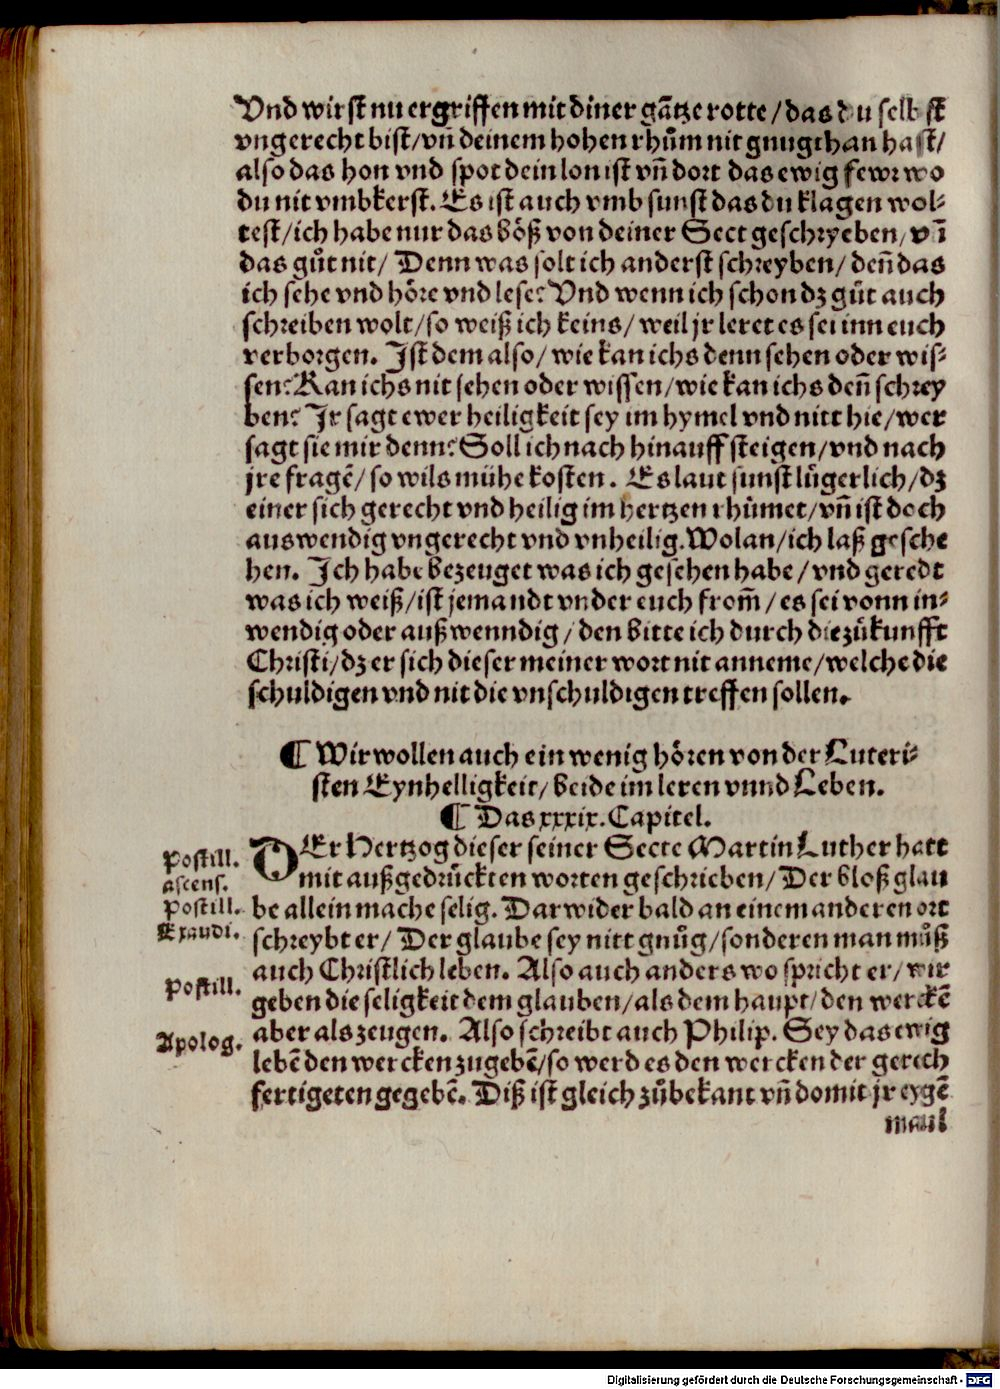 Vnd wirst nu ergriffen mit diner gãtze rotte / das du selbst
vngerecht bist / vñ deinem hohen rhům nit gnugthan hast /
also das hon vnd spot dein lon ist vñ dort das ewig fewr wo
du nit vmbkerst. Es ist auch vmb sunst das du klagen wol-
test / ich habe nur das böß von deiner Sect geschryeben / vñ
das gůt nit / Denn was solt ich anderst schreyben / deñ das
ich sehe vnd höre vnd lese? Vnd wenn ich schon dz gůt auch
schreiben wolt / so weiß ich keins / weil jr leret es sei inn euch
verborgen. Ist dem also / wie kan ichs denn sehen oder wis-
sen? Kan ichs nit sehen oder wissen / wie kan ichs deñ schrey
ben? Jr sagt ewer heiligkeit sey im hymel vnd nitt hie / wer
sagt sie mir denn? Soll ich nach hinauff steigen / vnd nach
jre fragẽ / so wils mühe kosten. Es laut sunst lůgerlich / dz
einer sich gerecht vnd heilig im hertzen rhůmet / vñ ist doch
auswendig vngerecht vnd vnheilig. Wolan / ich laß gesche
hen. Ich habe bezeuget was ich gesehen habe / vnd geredt
was ich weiß / ist jemandt vnder euch from̃ / es sei vonn in-
wendig oder außwenndig / den bitte ich durch die zůkunfft
Christi / dz er sich dieser meiner wort nit anneme / welche die
schuldigen vnd nit die vnschuldigen treffen sollen.
¶ Wir wollen auch ein wenig hören von der Luteri-
sten Eynhelligkeit / beide im leren vnnd Leben.
¶ Das xxxix. Capitel.
DEr Hertzog dieser seiner Secte Martin Luther hatt
mit außgedrůckten worten geschrieben / Der bloß glau
be allein mache selig. Darwider bald an einem anderen ort
schreybt er / Der glaube sey nitt gnůg / sonderen man můß
auch Christlich leben. Also auch anderswo spricht er / wir
geben die seligkeit dem glauben / als dem haupt / den werckẽ
aber als zeugen. Also schreibt auch Philip. Sey das ewig
lebẽ den wercken zugebẽ / so werd es den wercken der gerech
fertigeten gegebẽ. Diß ist gleich zůbekant vñ domit jr eygẽ
maul
Postill.
ascens.
Postill.
Exaudi.
Postill.
Apolog.
Digitalisierung gefördert durch die Deutsche Forschungsgemeinschaft - DFG